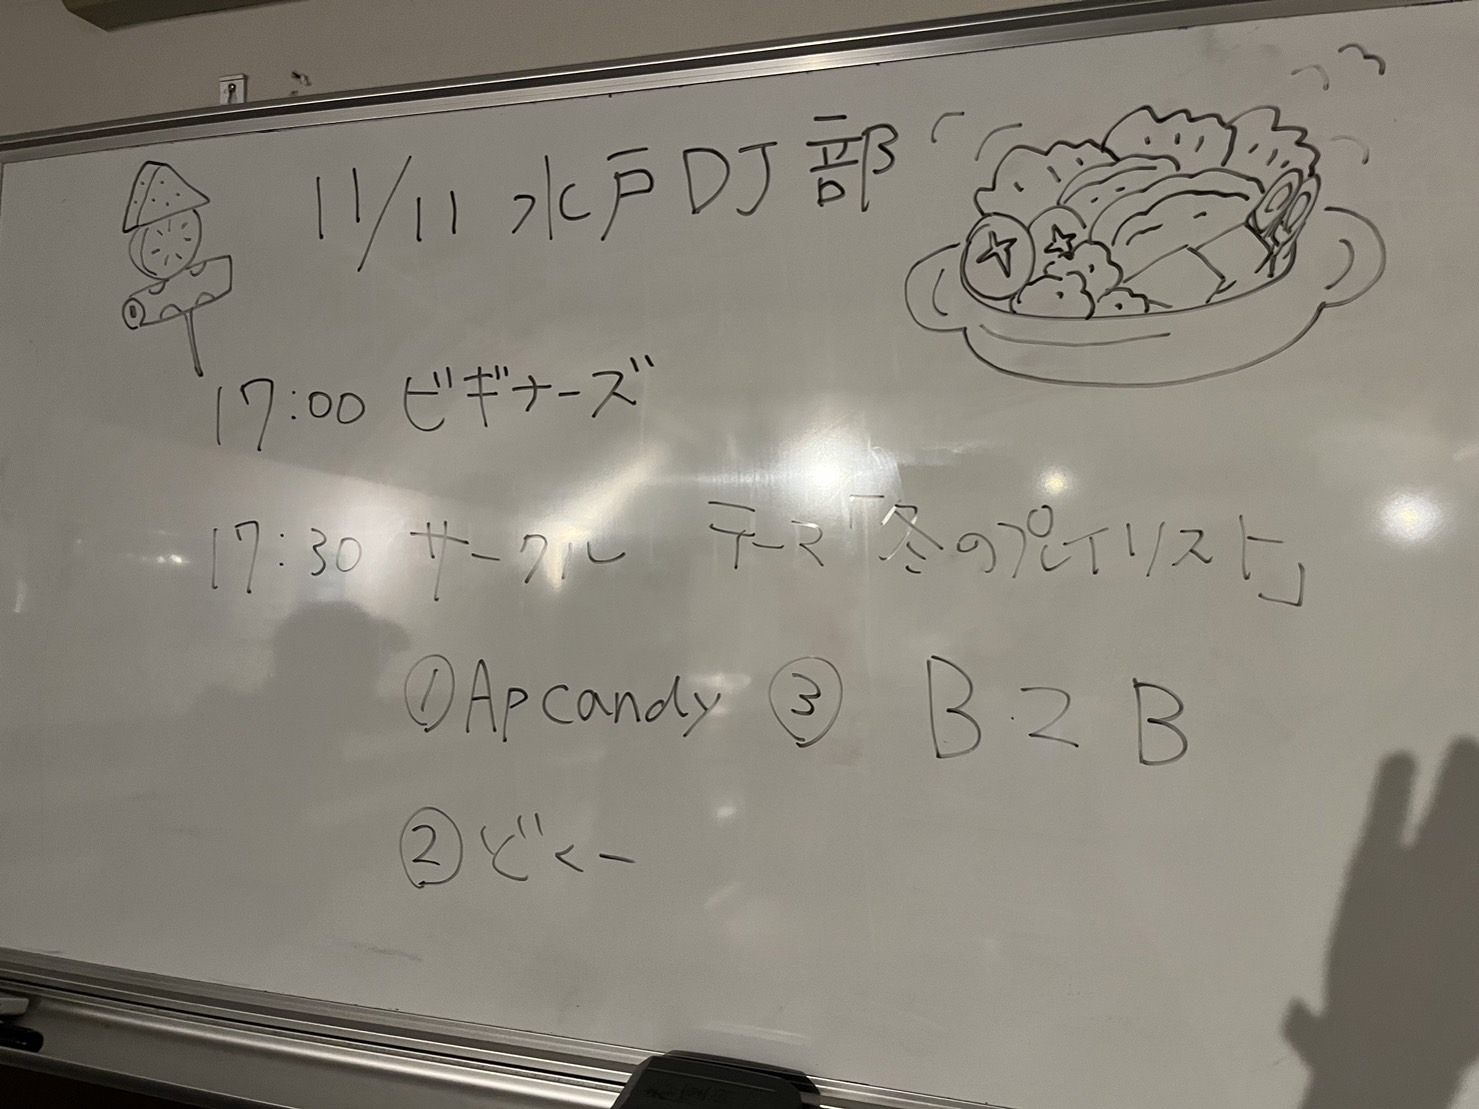 11/11 水戸DJ部
17:00 ビギナーズ
17:30 サークル テーマ「冬のプレイリスト」
①Apcandy ③ B2B
②どくー